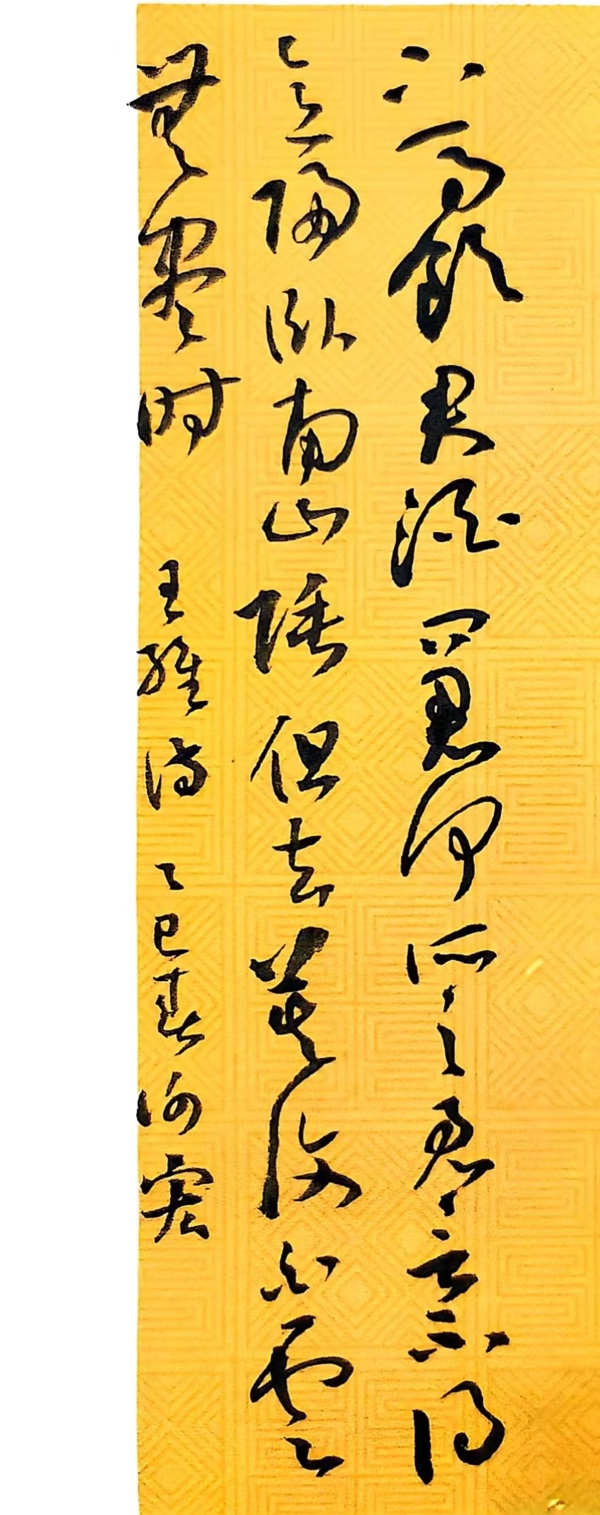 下馬飲君酒問君何所之君言不得
意歸卧南山陲但去莫復白雲
無盡时 王維诗 乙巳春